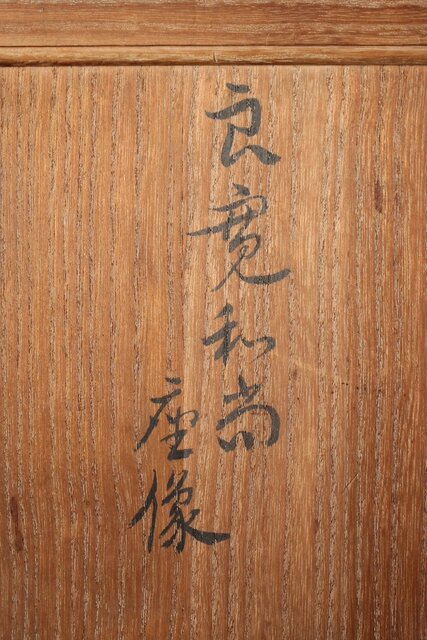 良寛和尚
座像